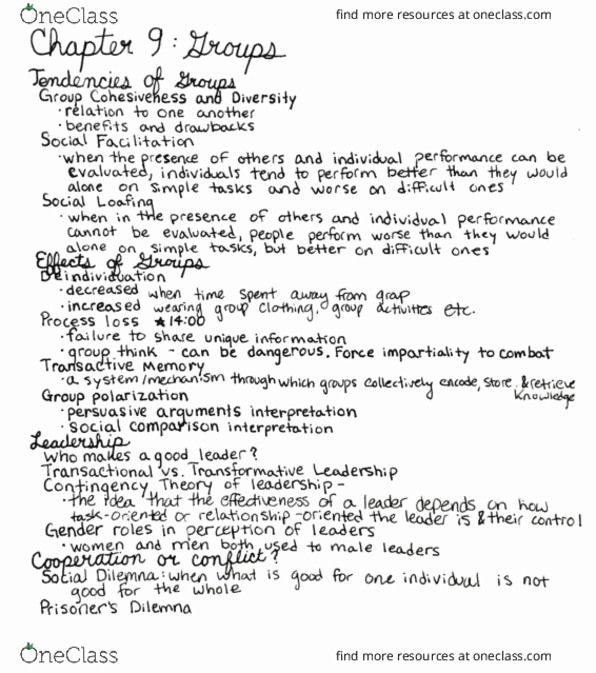 OneClass
find more resources at oneclass.com
Chapter 9: Groups
Tendencies of Groups
Group Cohesiveness and Diversity
· relation to one another
· benefits and drawbacks
Social Facilitation
· when the presence of others and individual performance can be
evaluated, individuals tend to perform better than they would
alone on simple tasks and worse on difficult ones
Social Loafing
· when in the presence of others and individual performance
cannot be evaluated, people perform worse than they would
alone on simple tasks, but better on difficult ones
Effects of Groups
Deindividuation
· decreased when time spent away from grap
· increased wearing group clothing, group activities etc.
Process loss ★14:00
· failure to share unique information
· group think - can be dangerous. Force impartiality to combat
Transactive Memory
· a system/mechanism through which groups collectively encode, store, & retrieve
knowledge
Group polarization
· persuasive arguments interpretation
· social comparison interpretation
Leadership
Who makes a good leader?
Transactional vs. Transformative Leadership
Contingency Theory of leadership -
· the idea that the effectiveness of a leader depends on how
task-oriented or relationship-oriented the leader is & their control
Gender roles in perception of leaders
· women and men both used to male leaders
Cooperation or conflict?
Social Dilemna: when what is good for one individual is not
good for the whole
Prisoner's Dilemna
OneClass
find more resources at oneclass.com